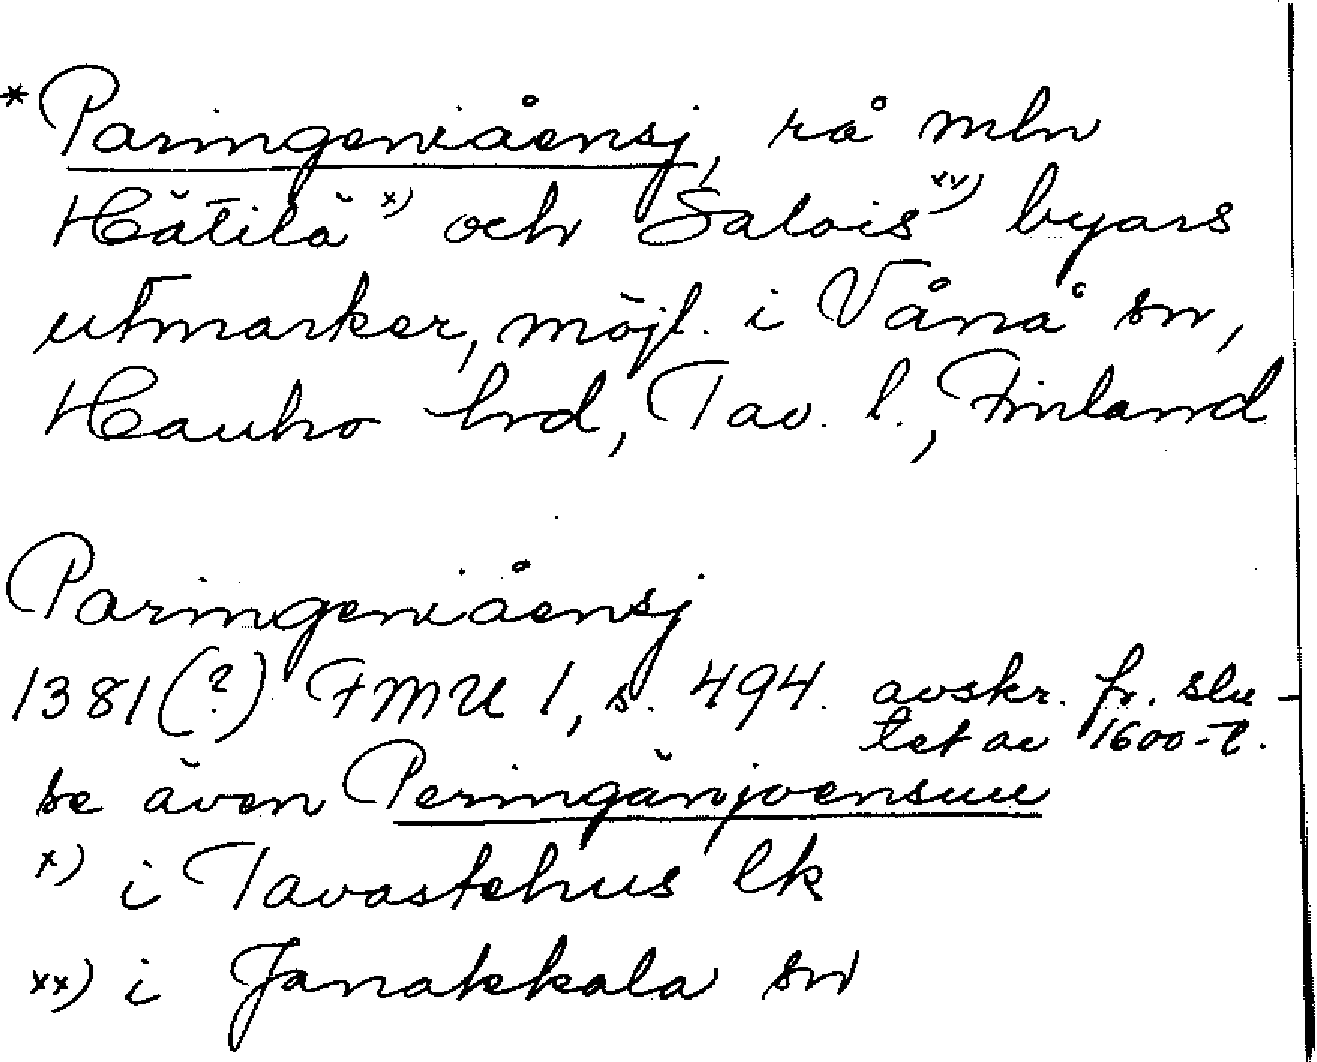 *Paringeniåensj, rå mln
Hätilä x) och Salois xx) byars
utmarker, möjl. i Vånå sn,
Hauho hrd, Tav. l., Finland
Paringeniåensj
1381(?) FMU 1, s. 494. avskr. fr. slu-
tet av 1600-t.
se även Peringänjoensuu
x) i Tavastehus lk
xx) i Janakkala sn